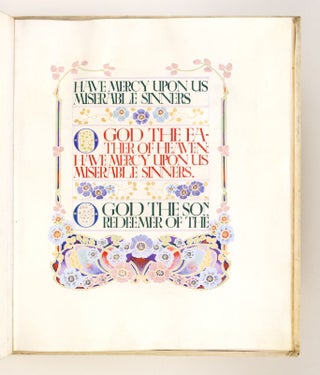 HAVE MERCY UPON US
MISERABLE SINNERS
O GOD THE FA-
THER OF HEAVEN:
HAVE MERCY UPON US
MISERABLE SINNERS.
O GOD THE SON
REDEEMER OF THE